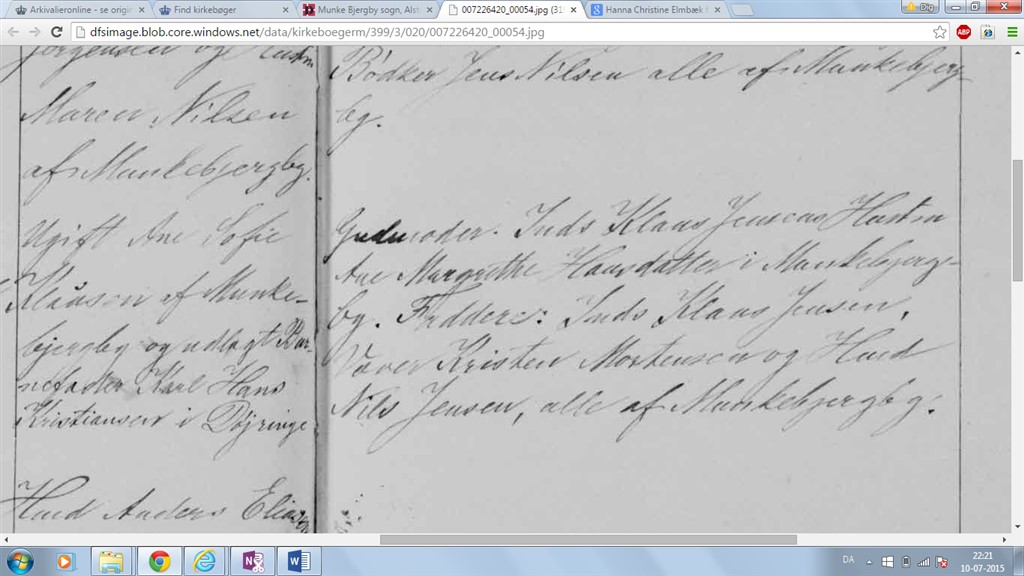 Arkivalieronline - se origin
Find kirkebøger
Munke Bjergby sogn, Alst
007226420_00054.jpg (31
Hanna Christine Elmbæk
Dig
dfsimage.blob.core.windows.net/data/kirkeboegerm/399/3/020/007226420_00054.jpg
ABP
Jørgensen og
Maren Nilsen
af Munkebjergby.
Ugift Ane Sofie
Klausen af Munke-
bjergby og udlagt Bar-
nefader Karl Hans
Kristiansen i Døjringe
Husd Anders Eliasen
Bødker Jens Nilsen alle af Munkebjerg
by.
Gudmoder. Inds Klaus Jensens Hustru
Ane Margrethe Hansdatter i Munkebjerg-
by. Faddere: Inds Klaus Jensen,
Væver Kristen Mortensen og Husd
Nils Jensen, alle af Munkebjergby.
DA
22:21
10-07-2015